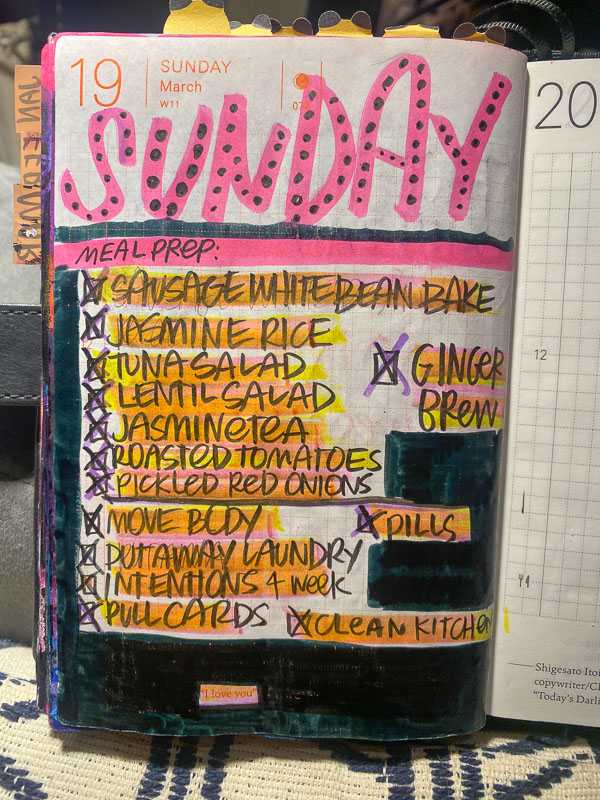 19
SUNDAY
March
W11
07
SUNDAY
MEAL PREP:
SAUSAGE WHITE BEAN BAKE
JASMINE RICE
TUNA SALAD
LENTIL SALAD
JASMINE TEA
ROASTED TOMATOES
PICKLED RED ONIONS
GINGER
BREW
MOVE BODY
PILLS
PUT AWAY LAUNDRY
INTENTIONS 4 WEEK
PULL CARDS
CLEAN KITCHEN
"I love you"
20
12
Shigesato Itoi
copywriter/
"Today's Darli
JAN